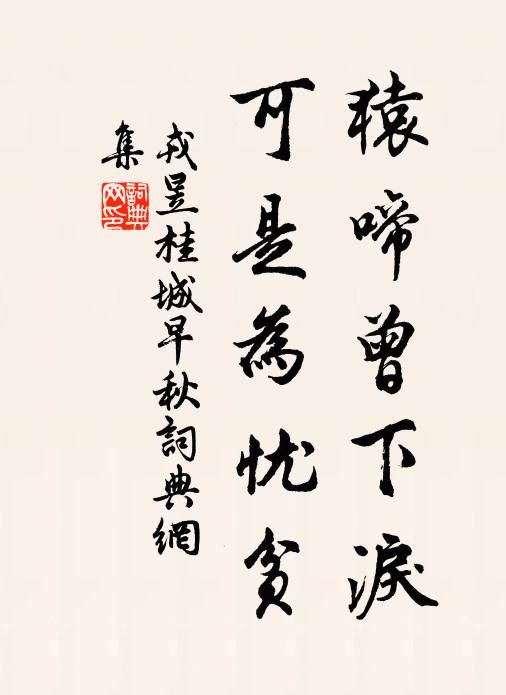 猿啼曾下淚
可是為忧貧
戎昱桂城早秋詞典網
集
詞典網印